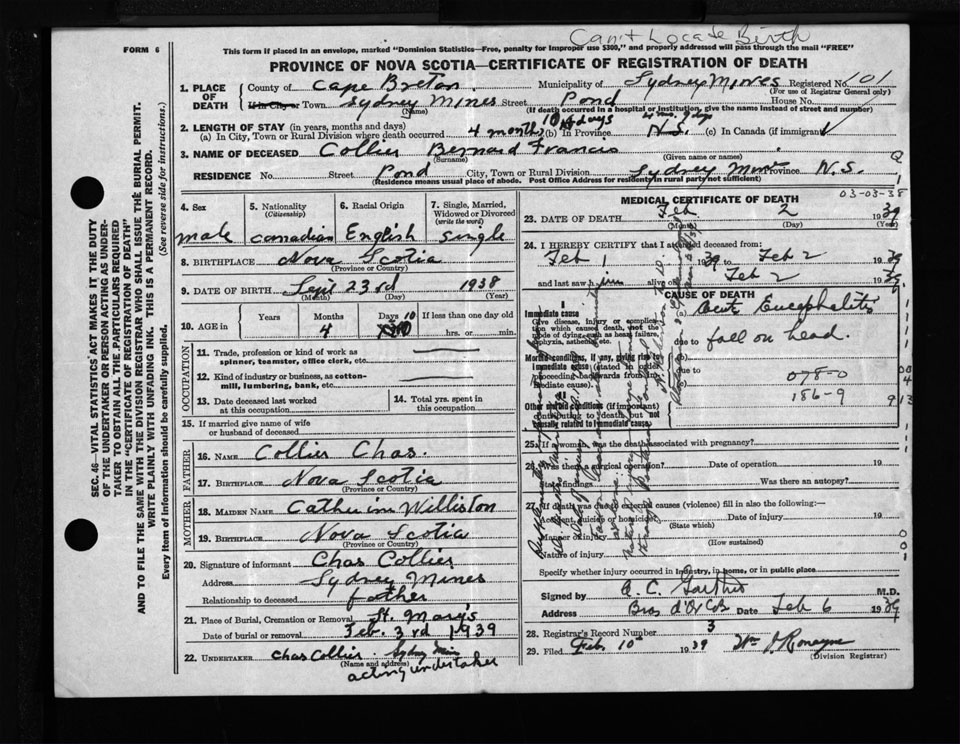 Can't Locate Birth
FORM 6
This form if placed in an envelope, marked "Dominion Statistics—Free, penalty for improper use $300," and properly addressed will pass through the mail "FREE"
PROVINCE OF NOVA SCOTIA—CERTIFICATE OF REGISTRATION OF DEATH
1. PLACE OF DEATH
County of Cape Breton. Municipality of Sydney Mines Registered No. 101
(For use of Registrar General only)
In City or Town Sydney Mines Street Pond House No.
(Name) (If death occurred in a hospital or institution, give the name instead of street and number)
2. LENGTH OF STAY (in years, months and days)
(a) In City, Town or Rural Division where death occurred 4 months 10 days (b) In Province N.S. (c) In Canada (if immigrant)
3. NAME OF DECEASED Collier Bernard Francis
(Surname) (Given name or names)
RESIDENCE No. Street Pond City, Town or Rural Division Sydney Mines Province N.S.
(Residence means usual place of abode. Post Office Address for residents in rural parts not sufficient)
03-03-38
4. Sex
male
5. Nationality (Citizenship)
Canadian
6. Racial Origin
English
7. Single, Married, Widowed or Divorced (write the word)
single
8. BIRTHPLACE Nova Scotia
(Province or Country)
9. DATE OF BIRTH Sept 23rd 1938
(Month) (Day) (Year)
10. AGE in Years Months 4 Days 10 If less than one day old
hrs. or min.
OCCUPATION
11. Trade, profession or kind of work as spinner, teamster, office clerk, etc.
12. Kind of industry or business, as cotton-mill, lumbering, bank, etc.
13. Date deceased last worked at this occupation
14. Total yrs. spent in this occupation
15. If married give name of wife or husband of deceased
FATHER
16. NAME Collier Chas.
17. BIRTHPLACE Nova Scotia
(Province or Country)
MOTHER
18. MAIDEN NAME Catherine Williston
19. BIRTHPLACE Nova Scotia
(Province or Country)
20. Signature of informant Chas Collier
Address Sydney Mines
Relationship to deceased father
21. Place of Burial, Cremation or Removal St. Mary's
Date of burial or removal Feb. 3rd 1939
22. UNDERTAKER Chas Collier Sydney Mines
(Name and address)
acting undertaker
MEDICAL CERTIFICATE OF DEATH
23. DATE OF DEATH Feb 2 1939
(Month) (Day) (Year)
24. I HEREBY CERTIFY that I attended deceased from:
Feb 1 1939 to Feb 2 1939
and last saw him alive on Feb 2 1939
CAUSE OF DEATH
Immediate cause
Give disease, injury or complication which caused death, not the mode of dying, such as heart failure, asphyxia, asthenia, etc.
(a) Acute Encephalitis
due to fall on head.
Morbid conditions, if any, giving rise to immediate cause (stated in order proceeding backwards from immediate cause).
(b)
due to
(c)
078-0
186-9
Other morbid conditions (if important) contributing to death but not causally related to immediate cause.
25. If a woman, was the death associated with pregnancy?
26. Was there a surgical operation? Date of operation 19
State findings Was there an autopsy?
27. If death was due to external causes (violence) fill in also the following:
Accident, suicide or homicide? Date of injury 19
(State which)
Manner of injury
(How sustained)
Nature of injury
Specify whether injury occurred in industry, in home, or in public place
Signed by A. C. M.D.
Address Bras d'Or C.B. Date Feb 6 1939
28. Registrar's Record Number 3
29. Filed Feb 10 1939 Wm J Ronayne
(Division Registrar)
SEC. 46—VITAL STATISTICS ACT MAKES IT THE DUTY OF THE UNDERTAKER OR PERSON ACTING AS UNDERTAKER TO OBTAIN ALL THE PARTICULARS REQUIRED IN THE "CERTIFICATE OF REGISTRATION OF DEATH" AND TO FILE THE SAME WITH THE DIVISION REGISTRAR WHO SHALL ISSUE THE BURIAL PERMIT.
WRITE PLAINLY WITH UNFADING INK. THIS IS A PERMANENT RECORD.
Every item of information should be carefully supplied. (See reverse side for instructions).